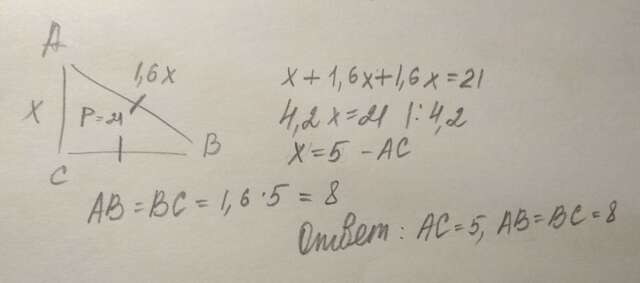 A
1,6x
x
P=21
B
C
x+1,6x+1,6x=21
4,2x=21 |:4,2
x=5 - AC
AB=BC=1,6·5=8
Ответ: AC=5, AB=BC=8